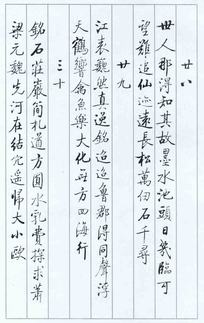 廿八
世人那得知其故墨水池頭日幾臨可
望難追仙迹遠長松萬仞石千尋
廿九
江表巍然真逸銘迢迢魯郡得同聲浮
天鶴響禽魚樂大化無方四海行
三十
銘石莊嚴簡札遒方圓水乳費探求蕭
梁元魏先河在結穴遙歸大小歐